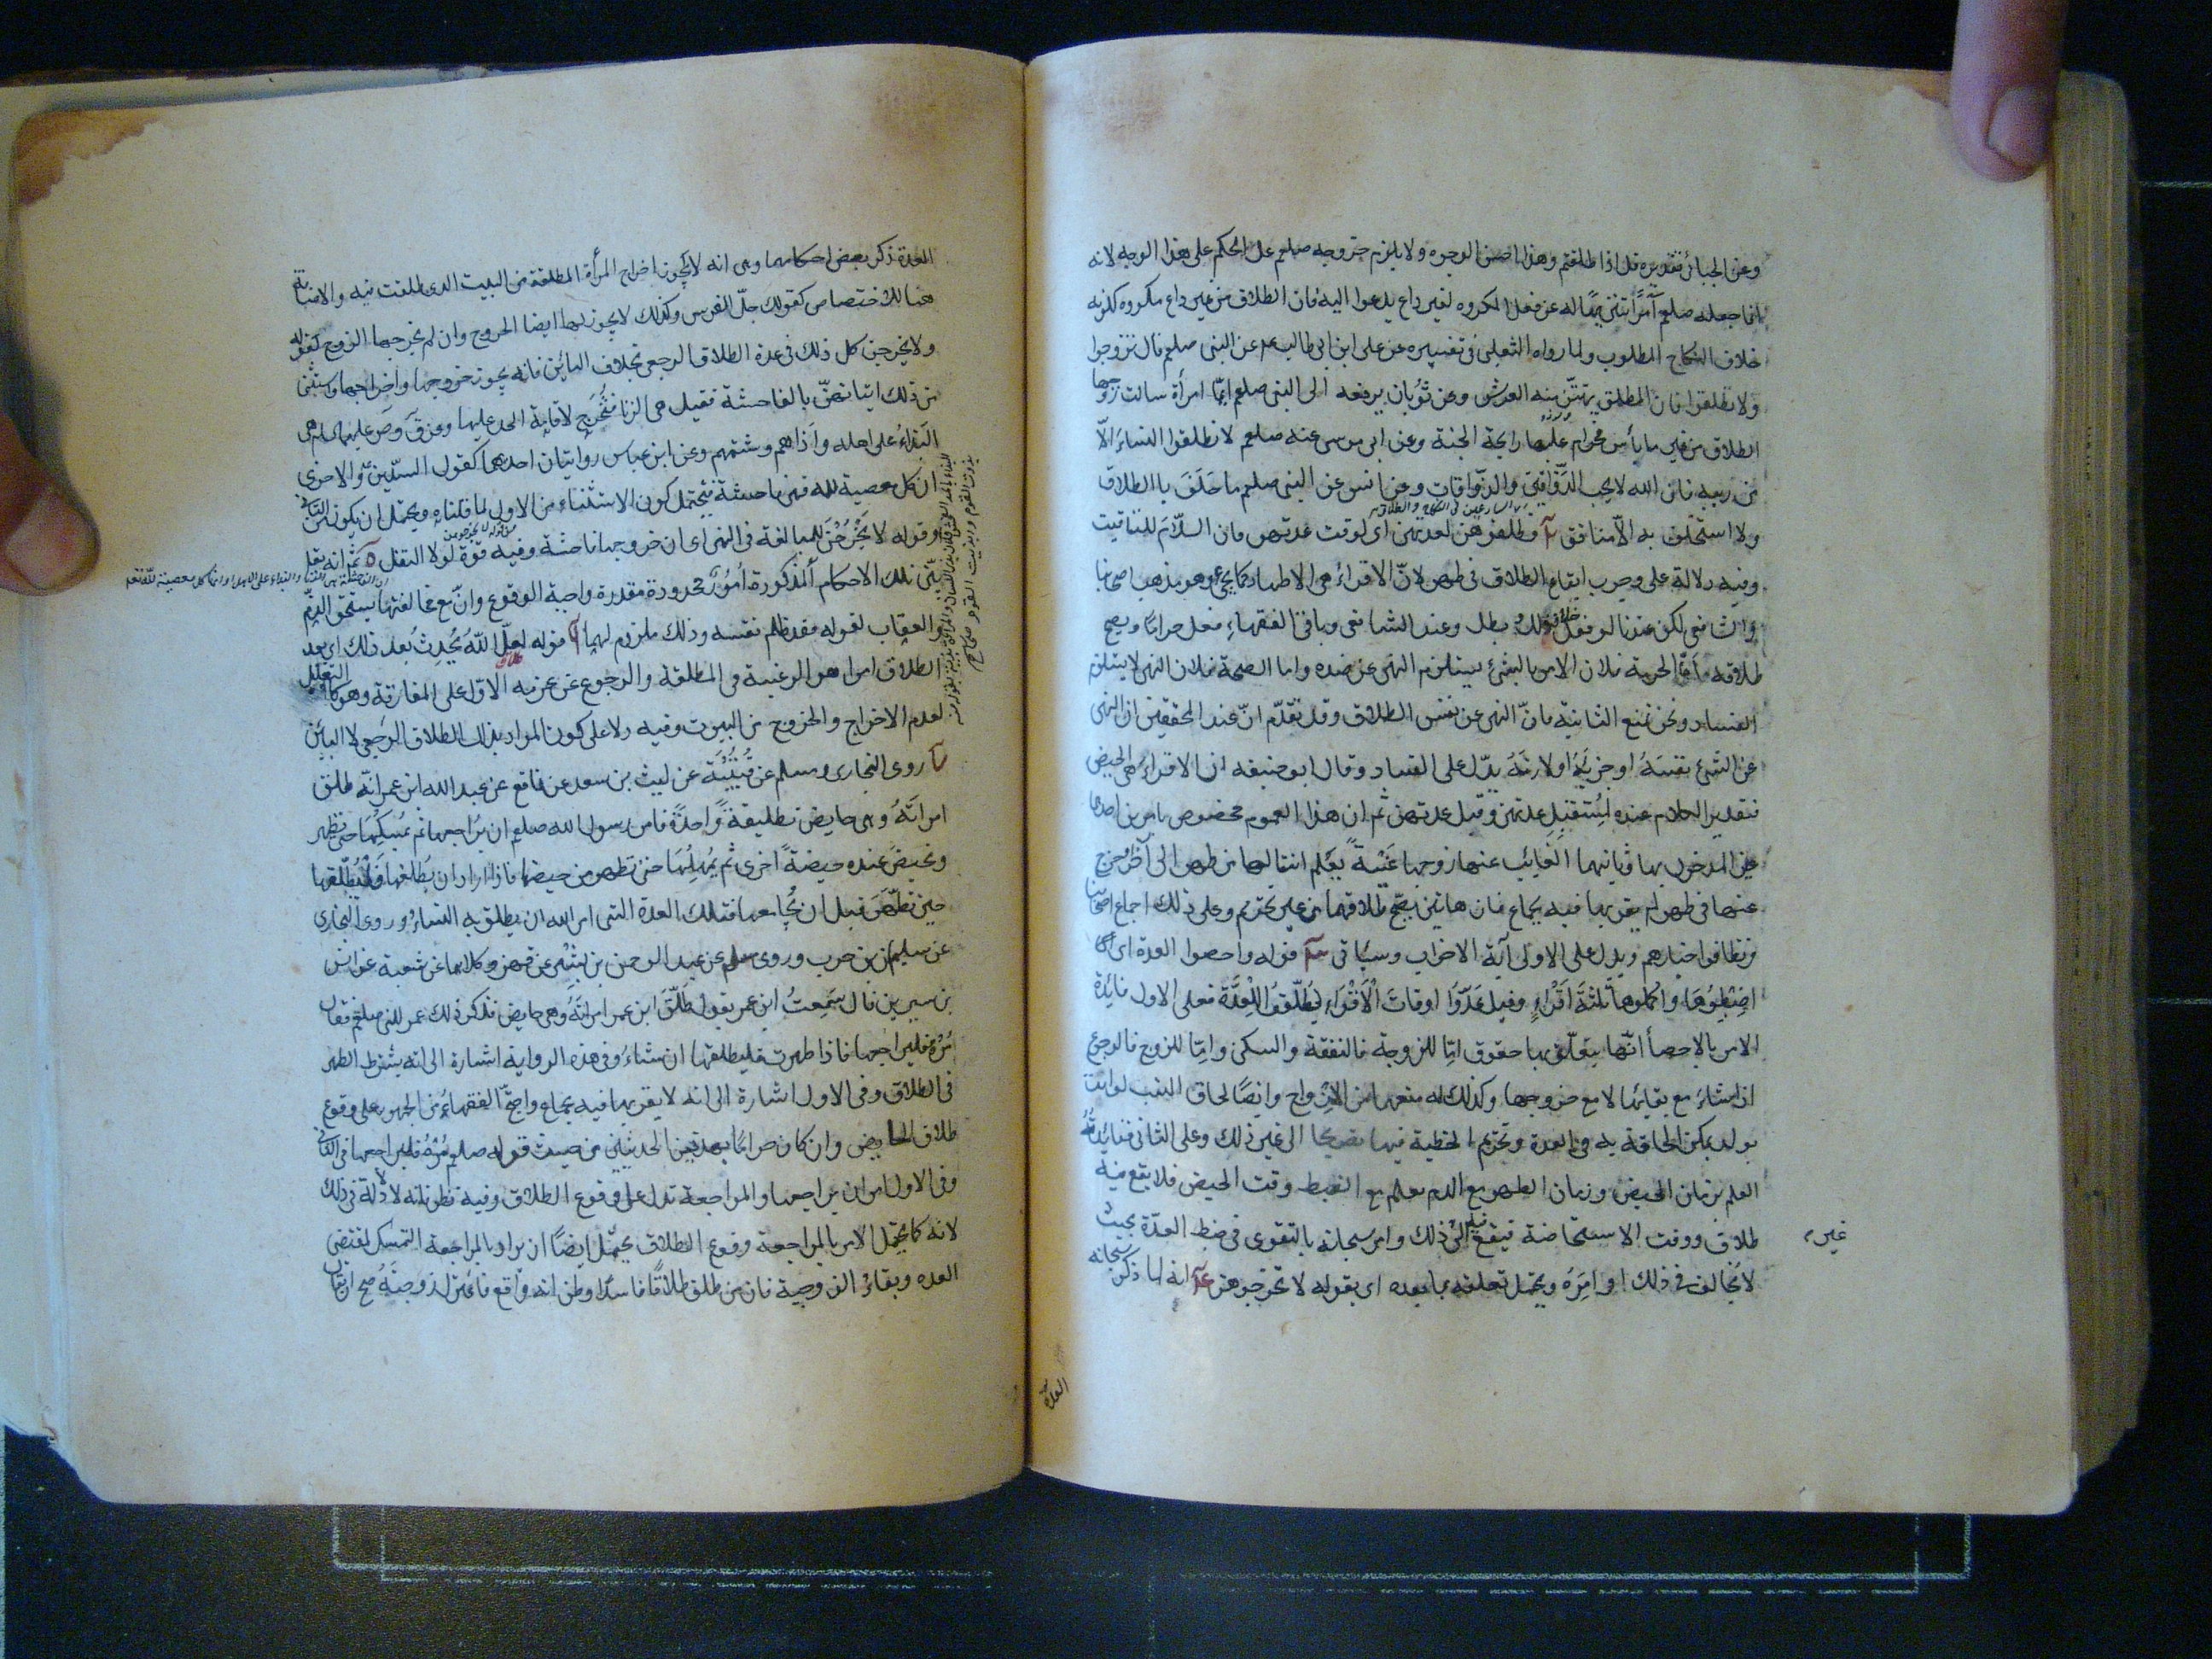 وعن الجبائي تقديره قل اذا طلقتم وهذا احسن الوجوه ولا يلزم خروجه صلعم عن الحكم على هذا الوجه لانه
انما جعله صلعم آمرًا تنزيهًا له عن فعل المكروه لغير داع يدعوا اليه فان الطلاق من غير داع مكروه لكونه
خلاف النكاح المطلوب ولما رواه الثعلبي في تفسيره عن على ابن ابى طالب عن النبى صلعم قال تزوجوا
ولا تطلقوا فان الطلاق يهتزّ منه العرش وعن ثوبان يرفعه الى النبى صلعم ايّما امرأة سالت زوجها
الطلاق من غير ما بأس فحرام عليها رايحة الجنة وعن ابى موسى عنه صلعم لا تطلقوا النساء الّا
من ريبه فان الله لا يحب الذوّاقين والذوّاقات وعن انس عن النبى صلعم ما حَلَفَ بالطلاق
ولا استحلف به الّا منافق وطلقوهن لعدتهن اى لوقت عدتهن فان اللام للتاقيت
وفيه دلالة على وجوب ايقاع الطلاق فى طهر لانّ الاقراء هى الاطهار كما يجئ وهو مذهب اصحابنا
والشافعى لكن عندنا لو فعل خلاف ذلك بطل وعند الشافعى وباقى الفقهاء فعل حرامًا ويصح
طلاقه امّا الحرمة فلان الامر بالشئ يستلزم النهى عن ضده واما الصحة فلان النهى لا يستلزم
الفساد ونحن نمنع الثانية فانّ النهى عن نفس الطلاق وقد تقدّم انّ عند المحققين ان النهى
عن الشئ بنفسه او جزئه او لازمه يدّل على الفساد وقال ابو حنيفه ان الاقراء هى الحيض
فتقدير الكلام عنده لتستقبل عدتهن وقبل عدتهن ثم ان هذا العموم مخصوص بامرين احدهما
غير المدخول بها وثانيهما الغائب عنها زوجها غَيْبةً يعلم انتقالها من طهر الى آخر وخرج
عنها فى طهر لم يقربها فيه بجماع فان هاتين يصّح طلاقهما من غير تحريم وعلى ذلك اجماع اصحابنا
وتظافر اخبارهم ويدل على الاولى آية الاحزاب وسياتى قوله واحصوا العدة اى
اضبطوها واكملوها ثلثةَ اَقراءٍ وقيل عدّوا اوقات الْاَقْرَاءِ لتطلّقوا لِلْعِدَّة فعلى الاول فائدة
الامر بالاحصاء انّها يتعلّق بها حقوق امّا للزوجة فالنفقة والسكنى وامّا للزوج فالرجوع
ان شاء مع بقائها لا مع خروجها وكذلك له منعها من الازواج وايضًا لحاق النسب لو اتت
بولد يمكن الحاقه به فى العدة وتحريم الخطبة فيها تصريحا الى غير ذلك وعلى الثانى فائدته
العلم بزمان الحيض وزمان الطهر مع الدم يعلم مع الضبط وقت الحيض فلا يقع فيه
طلاق ووقت الاستحاضة فيقع فيه الى غير ذلك وامر سبحانه بالتقوى فى ضبط العدّة بحيث
لا يخالف فى ذلك اوامره ويحتمل تعلقه بما بعده اى بقوله لا تخرجوهن انه لما ذكر سبحانه
العدة
العدة ذكر بعض احكامها وهى انه لا يجوز اخراج المرأة المطلقة من البيت الذى طلقت فيه والاضافة
هنا للاختصاص كقولك جلّ الفرس وكذلك لا يجوز لها ايضا الخروج وان لم يخرجها الزوج لقوله
ولا يخرجن كل ذلك فى عدة الطلاق الرجعى بخلاف البائن فانه يجوز خروجها واخراجها واستثنى
من ذلك اتيانهنّ بالفاحشة فقيل هى الزنا فتُخرج لاقامة الحد عليها وعن ق وص عليهما السلام هى
البَذاءُ على اهله واذاهم وشتمهم وعن ابن عباس روايتان احدهما كقول السيّدين والاخرى
ان كل معصية لله فهى فاحشة فيحتمل كون الاستثناء من الاول لما قلناه ويحتمل ان يكون من الثانى
وقوله لا يَخْرُجْنَ للمبالغة فى النهى اى ان خروجها فاحشة وفيه قوّة لولا النقل ثم انه تعالى
بيّن تلك الاحكام المذكورة امور محدودة مقدرة واجبة الوقوع وانّ مع مخالفتها يستحق الذمّ
والعقاب لقوله فقد ظلم نفسه وذلك ملزوم لهما قوله لعلّ الله يُحْدِثُ بعد ذلك اى بعد
الطلاق امرا هو الرغبة فى المطلقة والرجوع عن عزمه الاوّل على المفارقة وهو كالتعليل
لعدم الاخراج والخروج من البيوت وفيه دلا على كون المراد بذلك الطلاق الرجعى لا البائن
روى البخارى ومسلم عن قُتَيْبَة عن ليث بن سعد عن نافع عن عبد الله ابن عمر انّه طلق
امراتَهُ وهى حايض تطليقةً واحدةً فامر رسول الله صلعم ان يُراجعها ثم يُمسِكها حتى تطهر
وتحيض عنده حيضةً اخرى ثم يُمهِلُها حتى تطهر من حيضها فاذا اراد ان يُطلقها فَلْيُطلّقها
حين تطهر من قبل ان يُجامعها فتلك العدة التى امر الله ان يطلق به النساء وروى البخارى
عن سليمان بن حرب وروى مسلم عن عبد الرحمن بن بشر عن بهز وكلاهما عن شعبة عن انس
بن سيرين قال سَمِعتُ ابن عمر يقول طَلّقَ ابن عمر امراتَهُ وهى حايض فذكر ذلك عمر للنبى صلعم فقال
مُرْهُ فليراجعها فاذا طهرت فليطلقها ان شاء وفى هذه الرواية اشارة الى انه يشترط الطهر
فى الطلاق وفى الاول اشارة الى انه لا يقربها فيه بجماع واحتجّ الفقهاء من الجمهور على وقوع
طلاق الحايض وان كان حرامًا بهذين الحديثين من حيث قوله صلعم مُرْهُ فليراجعها فى الثانى
وفى الاول امر ان يراجعها والمراجعة تدل على وقوع الطلاق وفيه نظر فانه لا دلالة فى ذلك
لانه كما يحتمل الامر بالمراجعة وقوع الطلاق يحتمل ايضًا ان يراد بالمراجعة التمسك بمقتضى
العده وبقاء الزوجية فان من طلق طلاقًا فاسدًا وظن انه واقع فاعتزل زوجتهُ صح ان يقال
غير